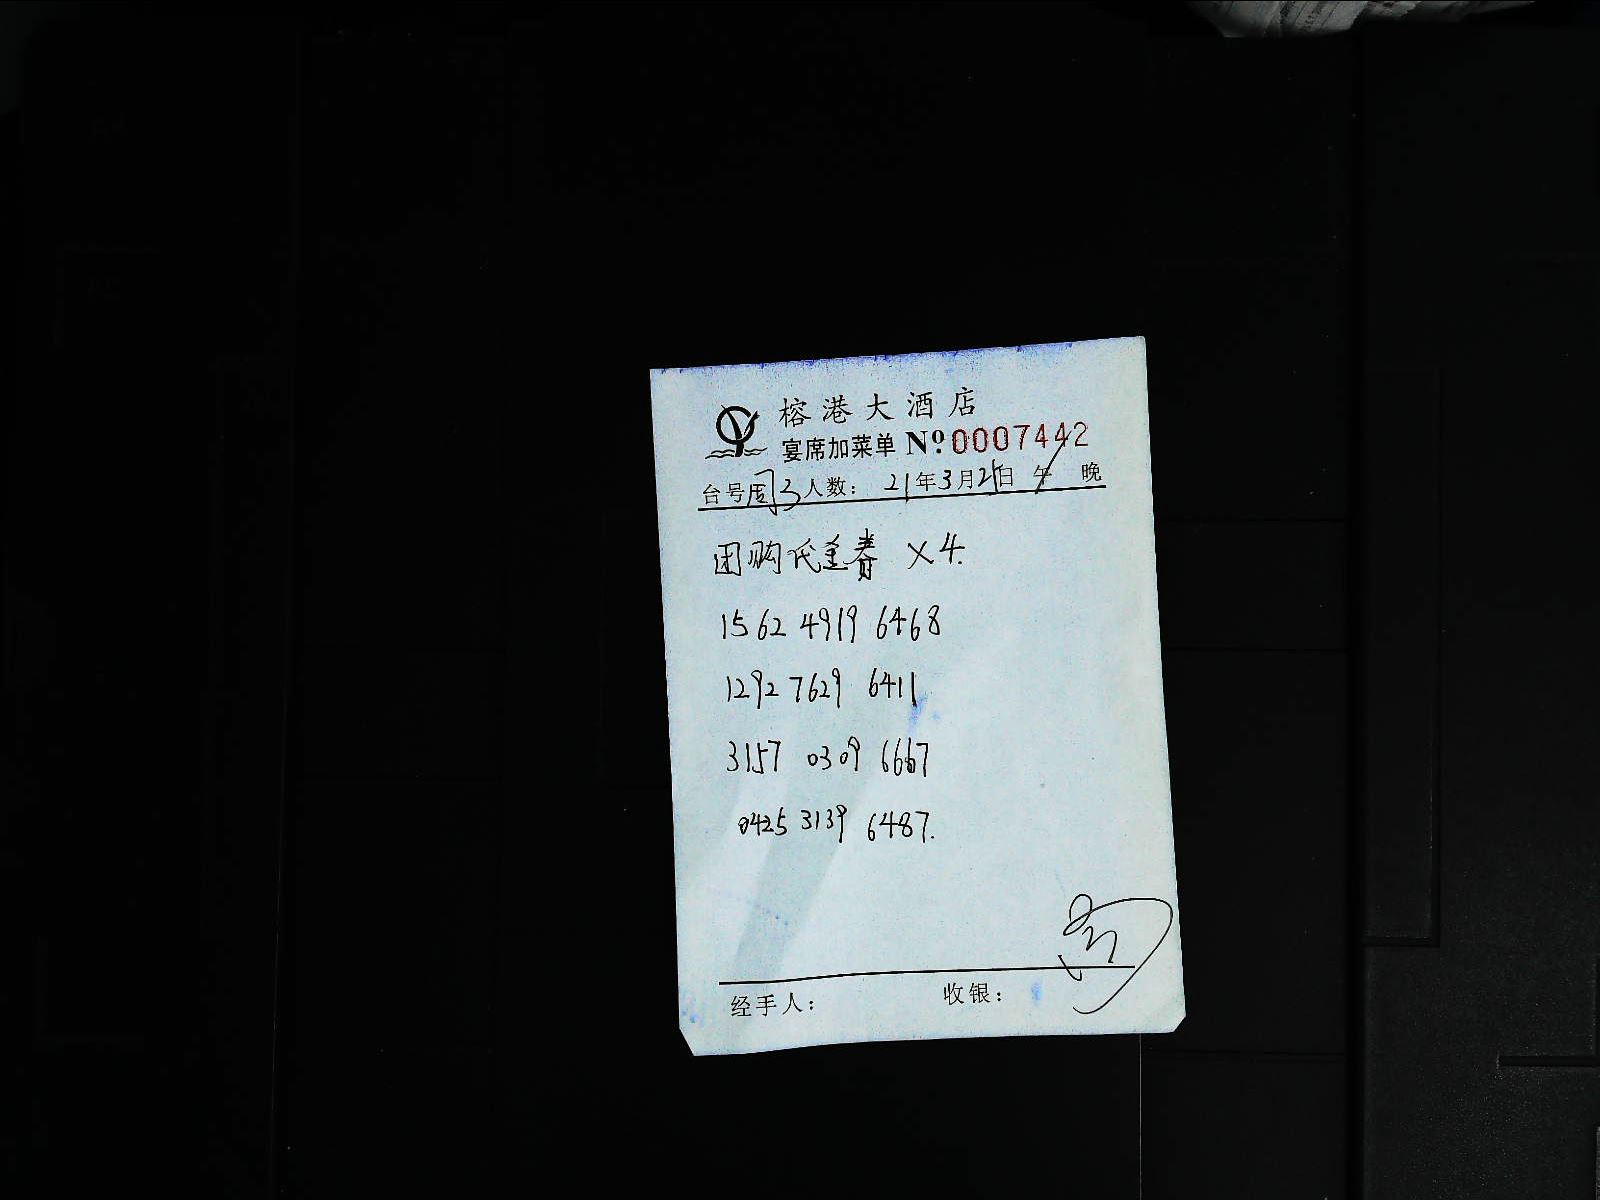 榕港大酒店
宴席加菜单 Nº.0007442
台号周3人数: 21年3月25日 午 晚
团购代金券 ×4.
1562 4919 6468
1292 7629 6411
3157 0309 6667
0425 3139 6487.
经手人: 收银: